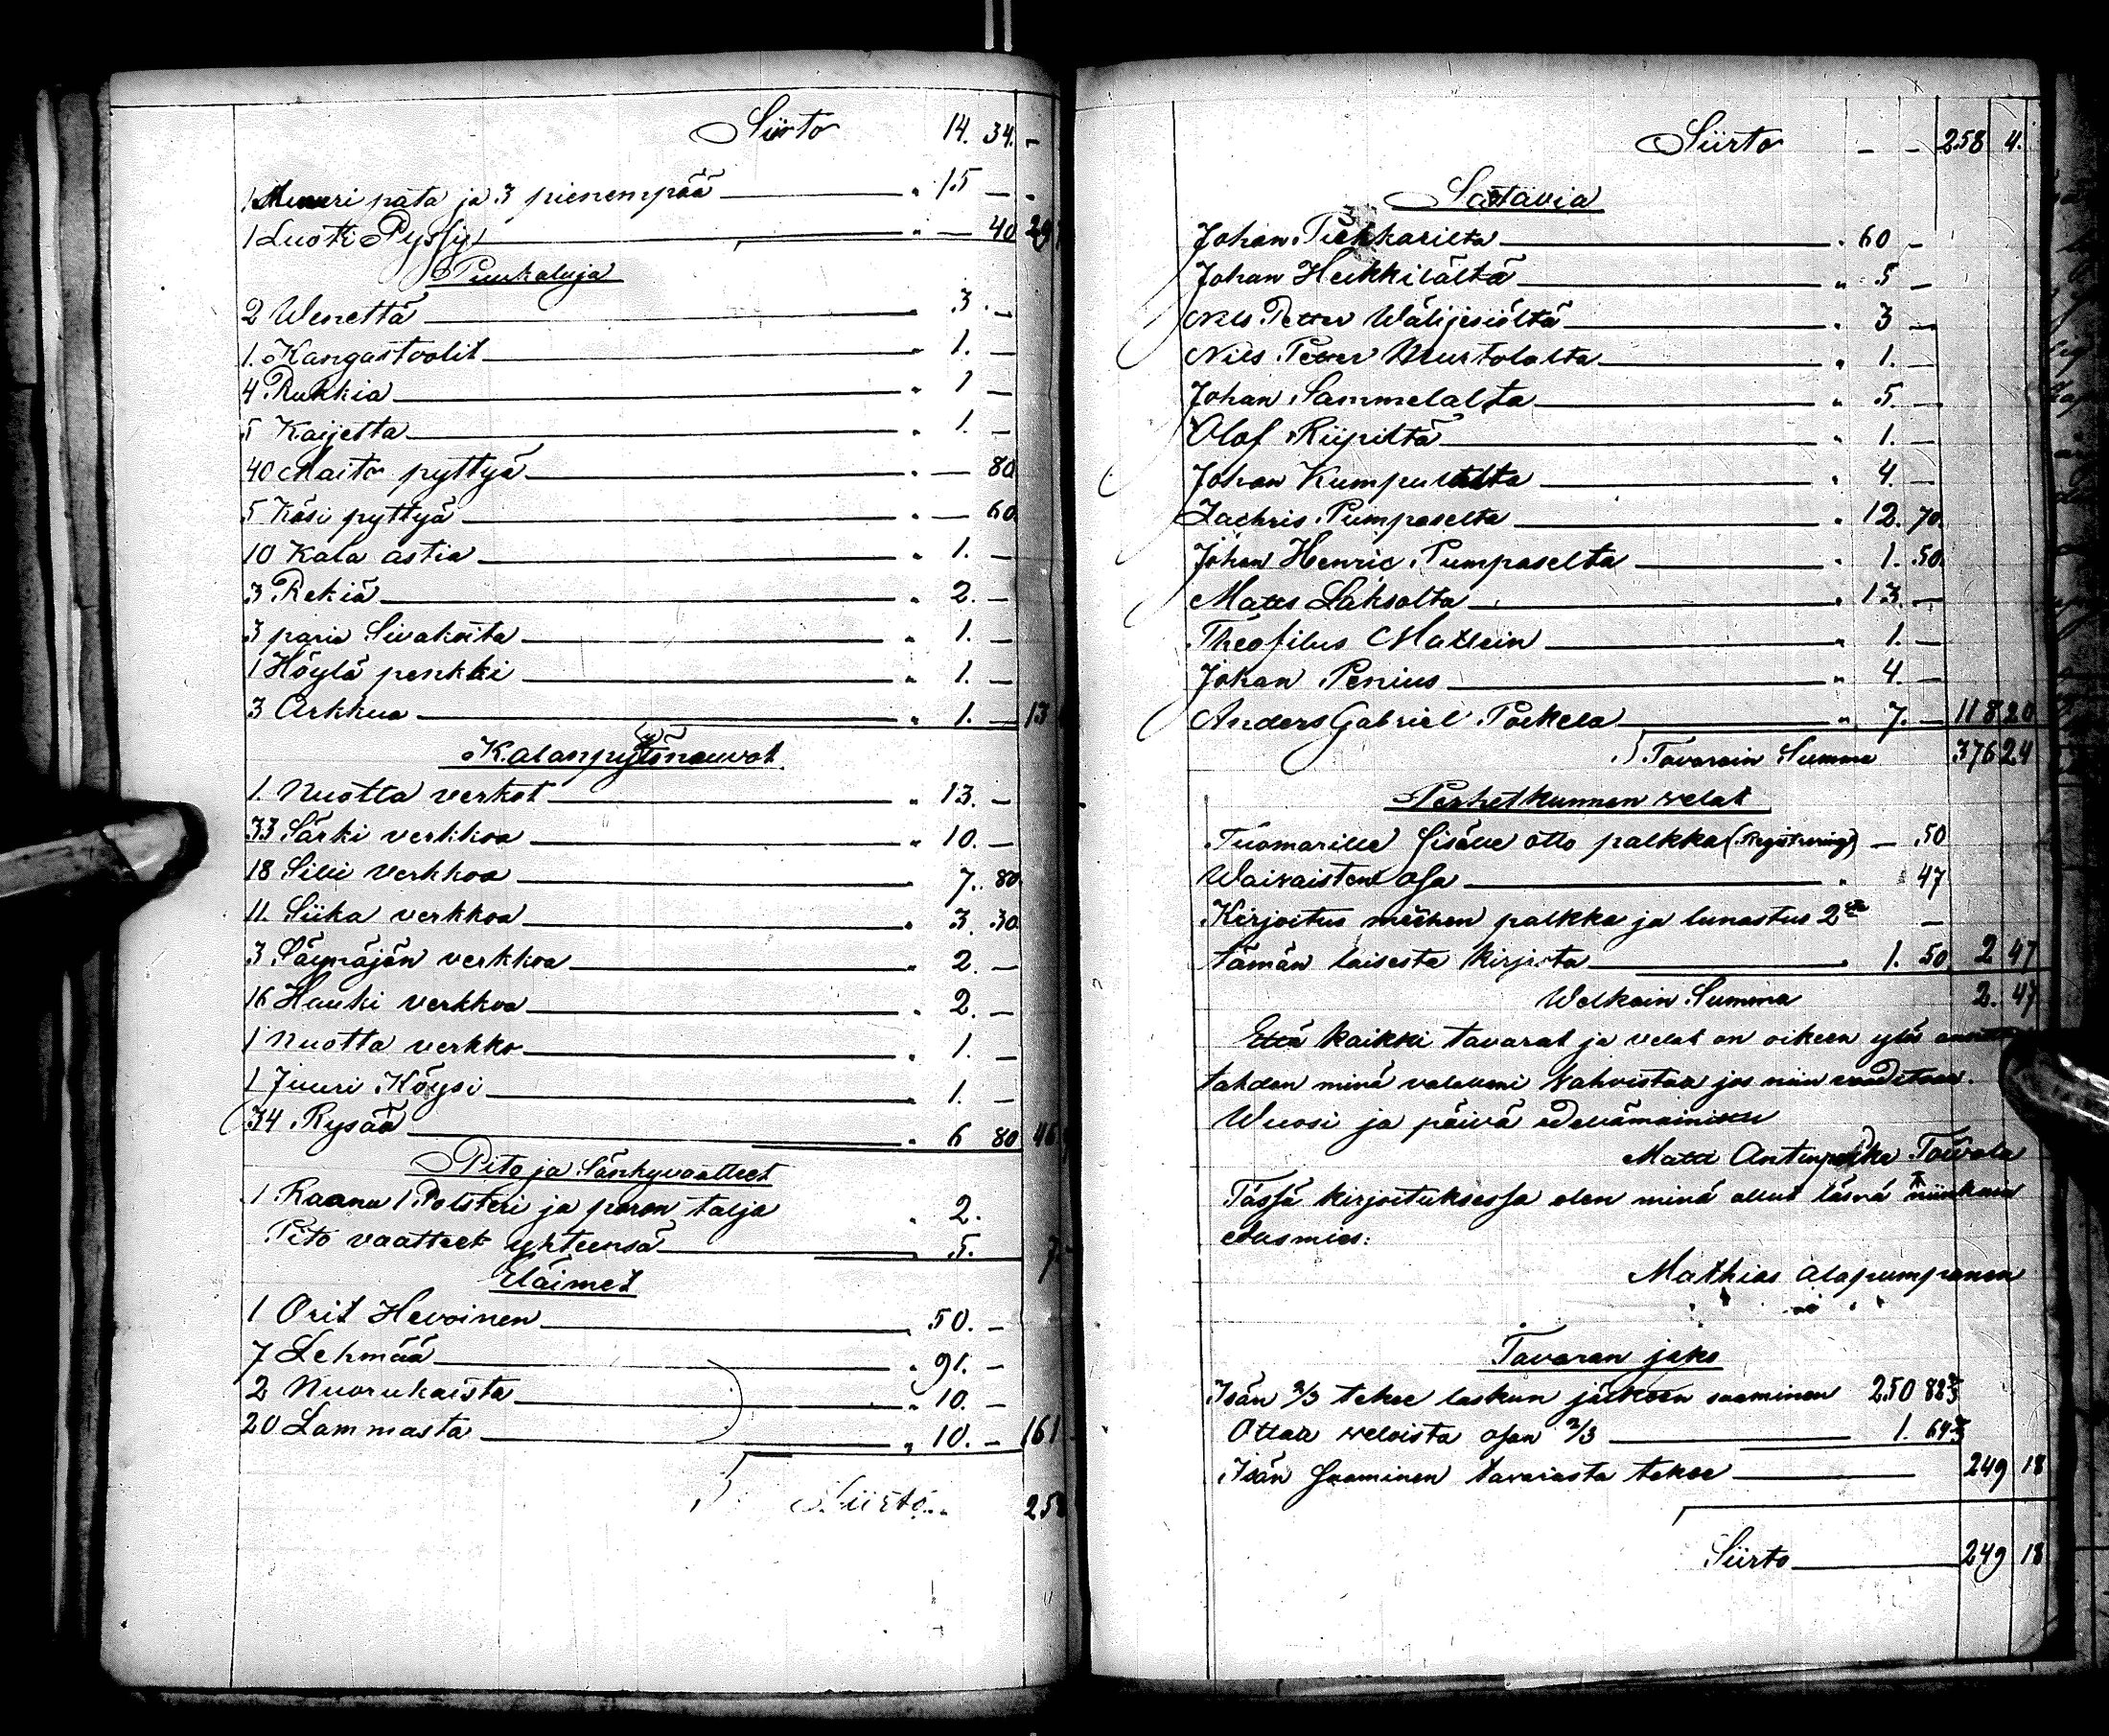 Siirto 14. 34. –
1 Muuri pata ja 3 pienempää „ 15 – –
1 Luoti Pyssy „ — 40 29
Puukaluja
2 Wenettä „ 3. –
1. Kangastoolit „ 1. –
4 Rukkia „ 1 –
5 Kaijetta „ 1. –
40 Maito pyttyä „ — 80
5 Käsi pyttyä „ — 60
10 Kala astia „ 1. –
3 Rekiä „ 2. –
3 paria Sivakoita „ 1. –
1 Höylä penkki „ 1. –
3 Arkkua „ 1. — 13
Kalanpytöneuvot
1. Nuotta verkot „ 13. –
33 Särki verkkoa „ 10. –
18 Silii verkkoa „ 7. 80
11. Siika verkkoa „ 3. 30
3 Säynäjän verkkoa „ 2. –
16 Hauki verkkoa „ 2. –
1 Nuotta verkko „ 1. –
1 Juuri Köysi „ 1. –
34 Rysää „ 6 80 46
Pito ja Sänkyvaatteet
1 Raanu 1 Polsteri ja poron talja „ 2.
Pito vaatteet yhteensä „ 5. 7
Eläimet
1 Orit Hevoinen 50. –
7 Lehmää „ 91. –
2 Nuorukaista „ 10. –
20 Lammasta „ 10. – 161
Siirto 258
Siirto – – 258 4.
Saatavia
Johan Pirkkarilta „ 60 –
Johan Heikkilältä „ 5 –
Nils Petter Wälijesiöltä „ 3 –
Nils Petter Murtolalta „ 1. –
Johan Sammelalta „ 5. –
Olof Riipiltä „ 1. –
Johan Kumpulalta „ 4. –
Zachris Pumpaselta „ 12. 70.
Johan Henric Pumpaselta „ 1. 50.
Matts Laksolta „ 13. –
Theofilus Mattein „ 1. –
Johan Penius „ 4. –
Anders Gabriel Poikela „ 7. – 118 20
Tavarain Summa 376 24
Perhetkunnan velat
Tuomarille sisälle otto palkka (Registrering) – 50
Waivaisten osa „ 47
Kirjoitus miehen palkka ja lunastus 2 –
tämän laisesta kirjasta „ 1. 50 2 47
Welkain Summa 2. 47
Että kaikki tavarat ja velat on oikeen ylös
tahdon minä valallani vahvistaa jos niin vaaditaan.
Wuosi ja päivä edellämainittu
Matti Antinpoika Toivola
Tässä kirjoituksessa olen minä ollut läsnä niinkuin
Uusmies:
Mathias Alapumpanen
Tavaran jako
Isän 2/3 tekee laskun jälkeen saaminen 250 82 2/3
Ottaa veloista osan 2/3 1. 64 2/3
Isän saaminen tavarasta tekee 249 18
Siirto 249 18